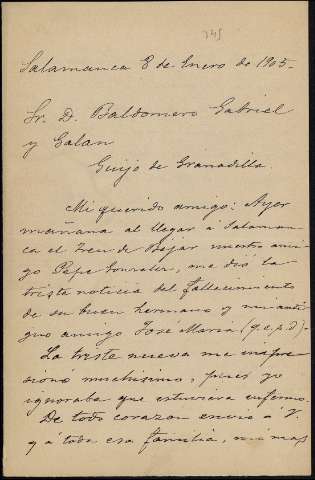 245
Salamanca 8 de Enero de 1905.
Sr. D. Baldomero Gabriel
y Galan
Guijo de Granadilla.
Mi querido amigo: Ayer
mañana al llegar á Salaman
ca el tren de Bejar nuestro ami
go Pepe Gonzalez, me dió la
triste noticia del fallecimiento
de su buen hermano y mi anti
guo amigo José Maria (q.e.p.d)-
La triste nueva me impre
sionó muchisimo, pues yo
ignoraba que estuviera enfermo.
De todo corazon envio á V.
y á toda esa familia, mi mas